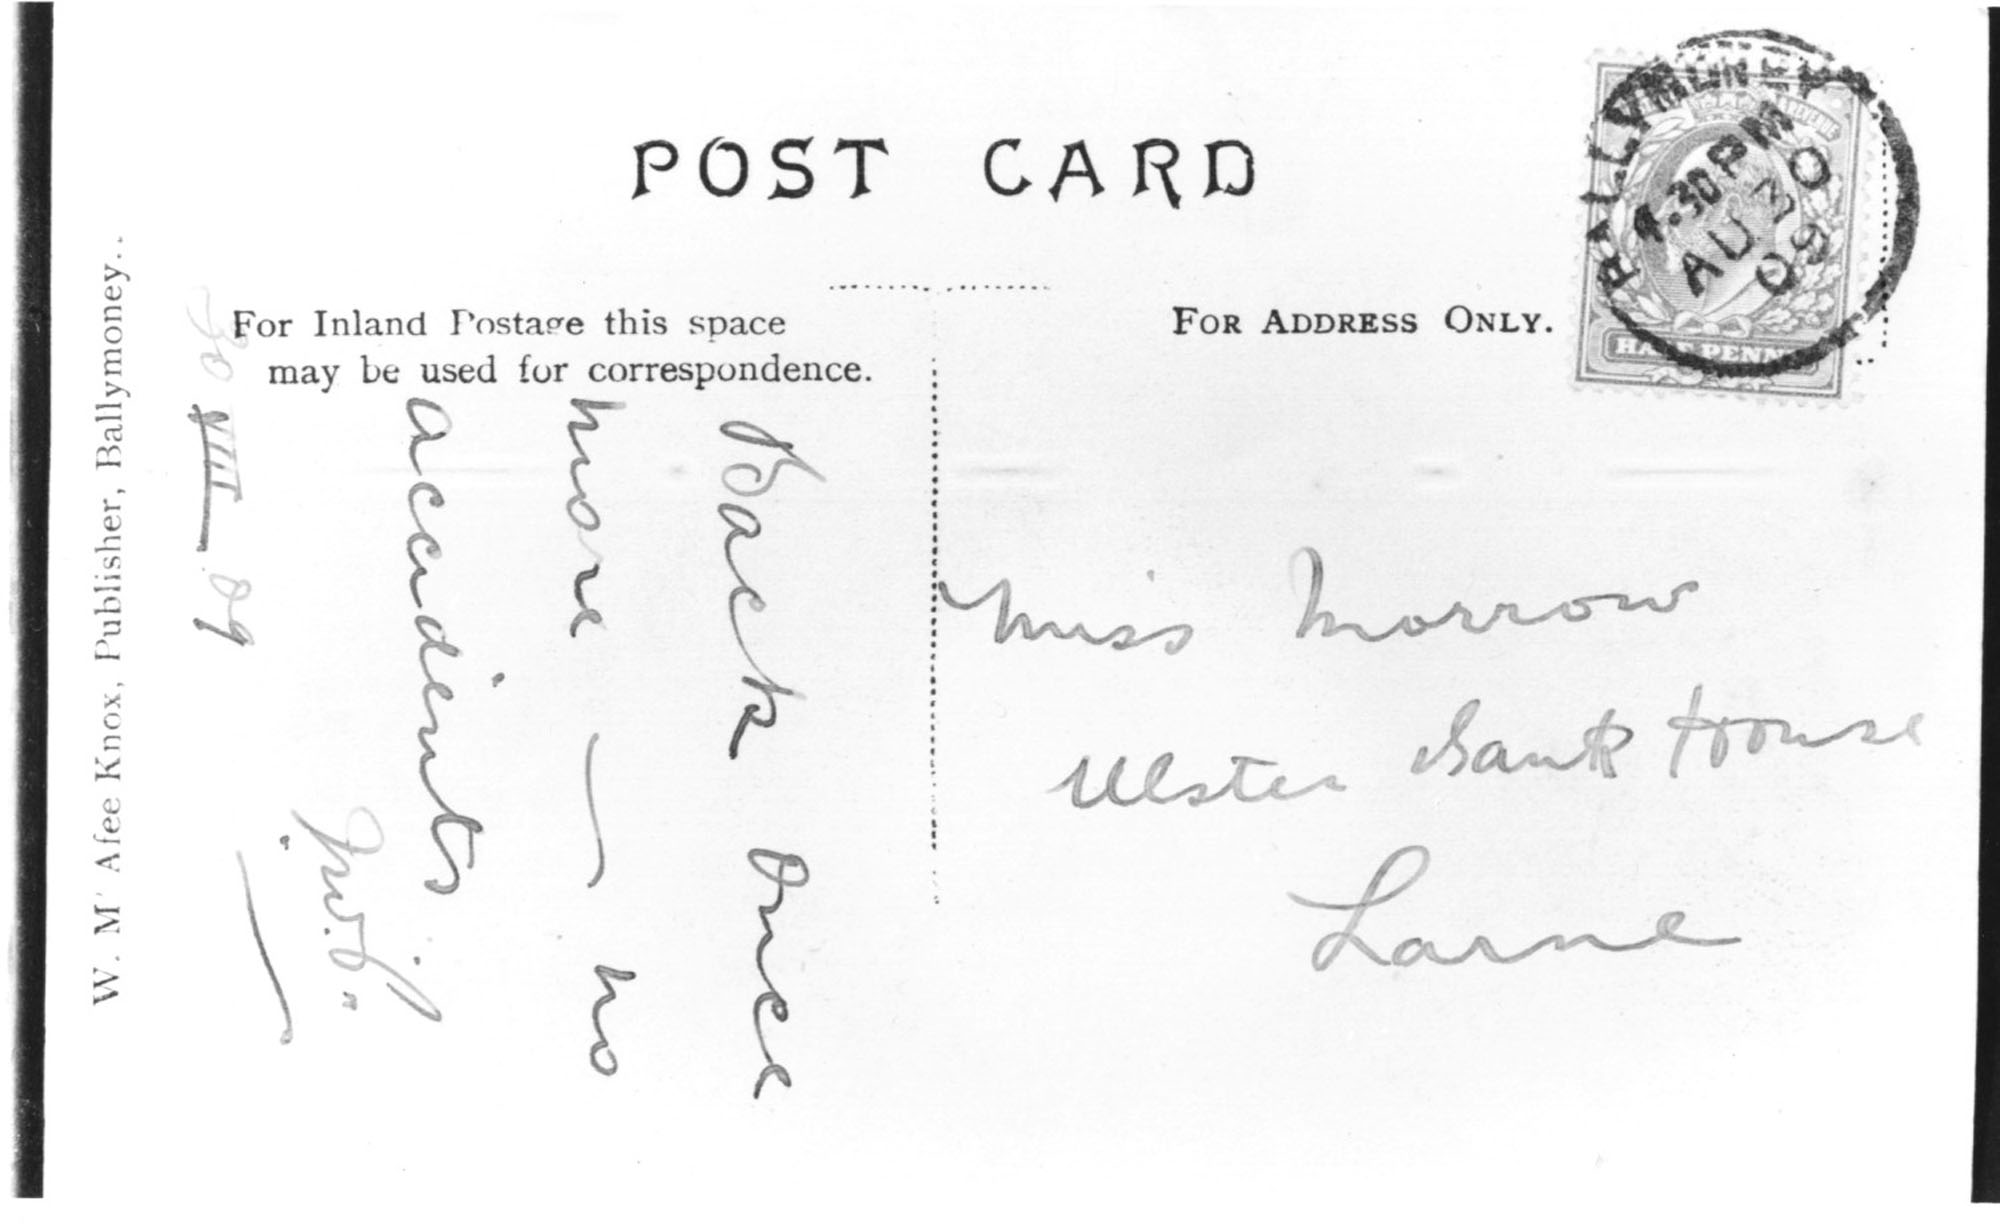 POST CARD
BALLYMONEY
1.30 PM
AU 30
09
HALF PENNY
For Inland Postage this space
may be used for correspondence.
FOR ADDRESS ONLY.
W. M' Afee Knox, Publisher, Ballymoney.
30 VIII 09
Back once
more — no
accidents
Miss Morrow
Ulster Bank House
Larne